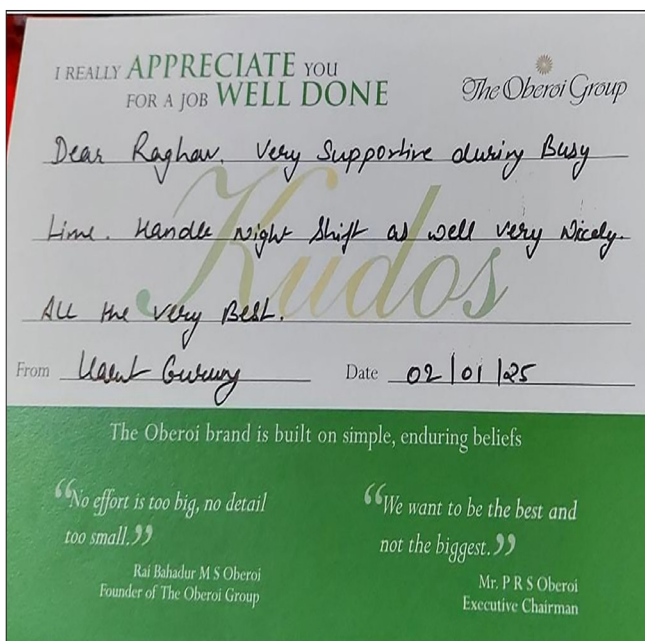 I REALLY APPRECIATE YOU
FOR A JOB WELL DONE
The Oberoi Group
Kudos
Dear Raghav, Very Supportive during Busy
time. Handle Night Shift as well very Nicely.
All the very Best.
From Gurung Date 02/01/25
The Oberoi brand is built on simple, enduring beliefs
“No effort is too big, no detail
too small.”
Rai Bahadur M S Oberoi
Founder of The Oberoi Group
“We want to be the best and
not the biggest.”
Mr. P R S Oberoi
Executive Chairman